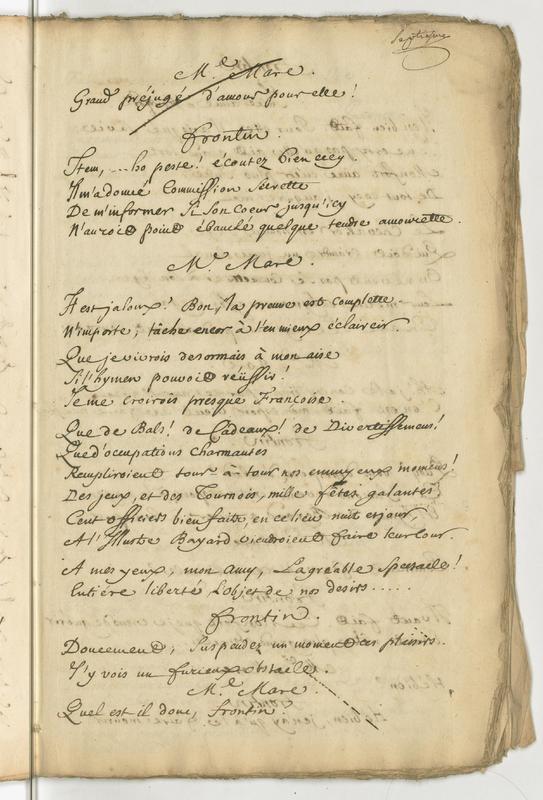 Septiesme
M.e Mare.
Grand préjugé d'amour pour elle!
frontin
Item, ... ho peste! écoutez bien cecy
Il m'a donné Commission Secrette
De m'informer Si Son Coeur jusqu'icy
N'auroit point ébauché quelque tendre amourette.
M.e Mare.
Il est jaloux! Bon, la preuve est complette.
N'importe, tâche encor à t'en mieux éclaircir.
Que je vivrois desormais à mon aise
Si l'hymen pouvoit réüssir!
Je me croirois presque Francoise.
Que de Bals! de Cadeaux! de Divertissemens!
Que d'occupations charmantes
Rempliroient tour à tour nos ennuyeux momens!
Des jeux, et des Tournois, mille fêtes galantes,
Cent officiers bien faits, en ce lieu nuit et jour,
A l'Illustre Bayard viendroient faire leur Cour.
A mes yeux, mon amy, L'agréable Spectacle!
Entiére liberté, L'objet de nos desirs.....
frontin.
Doucement, Suspendez un moment ces plaisirs.
J'y vois un furieux obstacle.
M.e Mare.
Quel est il donc, frontin?